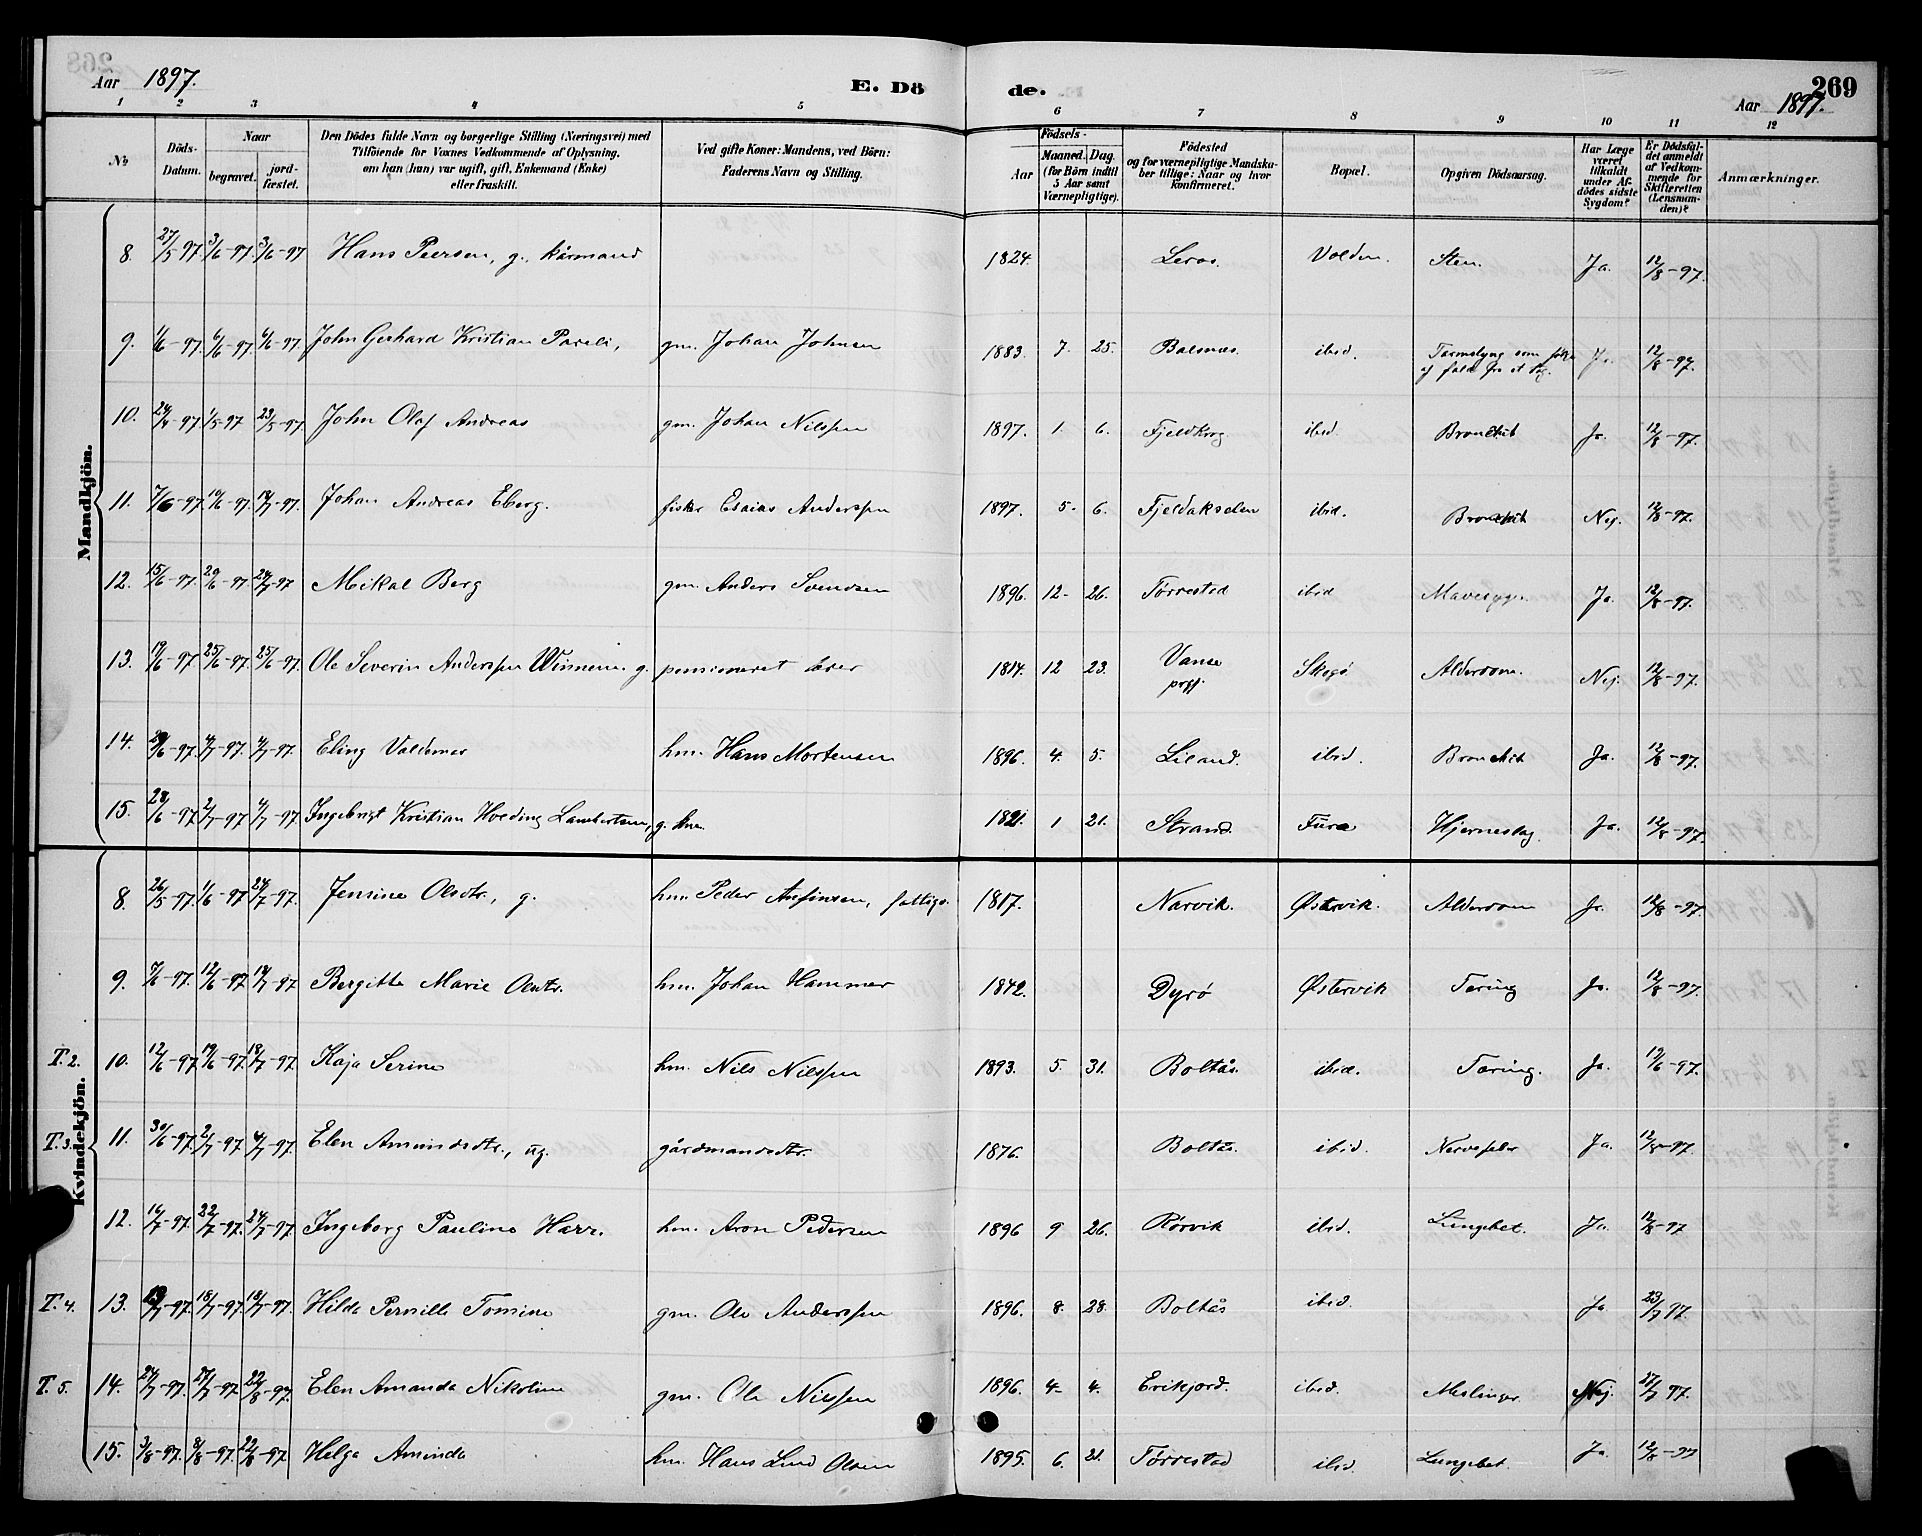 Aar 1897. E. Dö de. Aar 1897. 269
1 2 3 4 5 6 7 8 9 10 11 12
No
Döds-Datum.
Naar
begravet.
jord-fæstet.
Den Dödes fulde Navn og borgerlige Stilling (Næringsvei) med
Tilföiende for Voxnes Vedkommende af Oplysning,
om han (hun) var ugift, gift, Enkemand (Enke)
eller fraskilt.
Ved gifte Koner: Mandens, ved Börn:
Faderens Navn og Stilling.
Födsels-
Aar
Maaned. Dag.
(for Börn indtil
5 Aar samt
Værnepligtige).
Födested
og for værnepligtige Mandska-
ber tillige: Naar og hvor
konfirmeret.
Bopæl.
Opgiven Dödsaarsag.
Har Læge
været
tilkaldt
under Af-
dödes sidste
Sygdom?
Er Dödsfal-
det anmeldt
af Vedkom-
mende for
Skifteretten
(Lensman-
den)?
Anmærkninger.
Mandkjön.
8. 27/5-97. 3/6-97. 3/6-97 Hans Peersen, g. kårmand 1824. Leros. Volden. Sten. Ja. 12/8-97.
9. 1/6-97. 6/6-97. 6/6-97. John Gerhard Kristian Pareli, gm. Johan Johnsen 1883. 7. 25. Balsnes. ibid. Tarmslyng som følge af fald fra et Ja. 12/8-97.
10. 24/4-97. 1/5-97 23/5-97. John Olaf Andreas gm. Johan Nilssen 1897. 1. 6. Fjeldkrog ibid. Bronchit Ja. 12/8-97.
11. 7/6-97. 19/6-97. 18/7-97. Johan Andreas Eberg. fisker Esaias Anderssen 1897. 5. 6. Fjeldakselen ibid. Bronchit Nej. 12/8-97.
12. 15/6-97. 20/6-97. 24/7-97 Mikal Berg gm. Anders Svendsen 1896. 12- 26. Tørrestad ibid Mavesyge. Ja. 12/8-97.
13. 19/6-97. 25/6-97. 25/6-97. Ole Severin Anderssen Winnem. g. pensioneret lærer 1814. 12 23. Vanse prgj. Skogø Alderdom. Nej. 12/8-97.
14. 29/6-97. 4/7-97. 4/7-97. Eling Valdemar hm. Hans Mortensen 1896. 4. 5. Liland. ibid. Bronchit Ja. 12/8-97.
15. 28/6-97 2/7-97 4/7-97. Ingebrigt Kristian Hveding Lambertsen, g. hm. 1821. 1 21. Strand. Furø Hjerneslag. Ja. 12/8-97.
Kvindekjön.
8. 26/5-97. 1/6-97 24/7-97. Jensine Olsdtr., g. hm. Peder Anfinsen, fattigs. 1817. Narvik. Østervik. Alderdom Ja. 12/8-97.
9. 7/6-97. 12/6-97 18/7-97 Bergitte Marie Olsdtr. hm. Johan Hammer 1842. Dyrö Østervik Tæring Ja. 12/8-97.
T. 2. 10. 12/6-97 19/6-97. 18/7-97. Kaja Serine hm. Nils Nilssen 1893. 5. 31. Boltås. ibid. Tæring. Ja. 19/6-97.
T. 3. 11. 30/6-97. 2/7-97. 4/7-97. Elen Amundsdtr., ug. gårdmandsdtr. 1876. Boltås. ibid. Nervefeber Ja. 12/8-97.
12. 16/7-97. 22/7-97. 24/7-97. Ingeborg Pauline Harr. hm. Aron Pedersen 1896 9 26. Rørvik ibid. Lungebet. Ja. 12/8-97
T. 4. 13. 13/7-97. 18/7-97. 18/7-97. Hilda Pernille Tomine gm. Ole Anderssen 1896. 8. 28. Boltås ibid. Ja 23/7 97.
T. 5. 14. 24/7-97. 27/7-97. 22/8-97. Elen Amanda Nikoline gm. Ole Nilssen 1896. 4- 4. Erikjord. ibid. Meslinger Nej. 27/7 97.
15. 3/8-97. 8/8-97. 22/8-97. Helga Aminda hm. Hans Lind Olsen 1895. 6. 21. Tørrestad ibid. Lungebet. Ja. 12/8-97